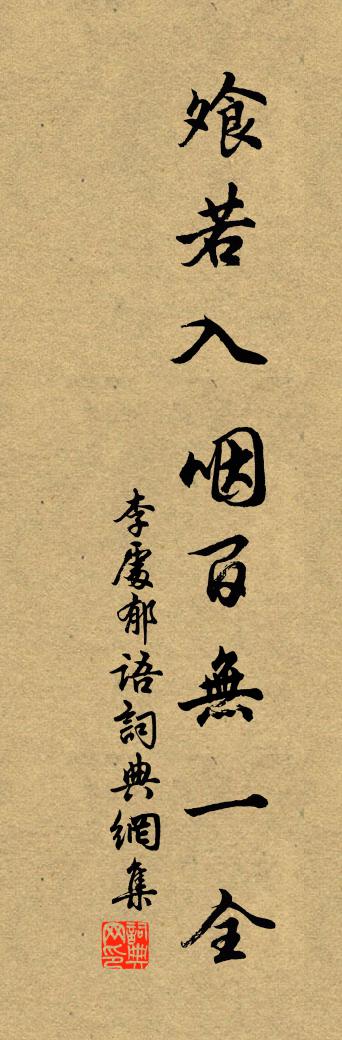 飧若入咽百無一全
李處郁語詞典網集
詞典网印